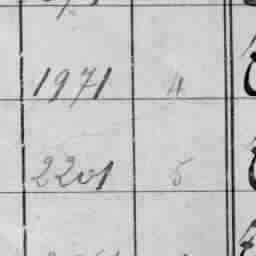 1971 4
2201 5